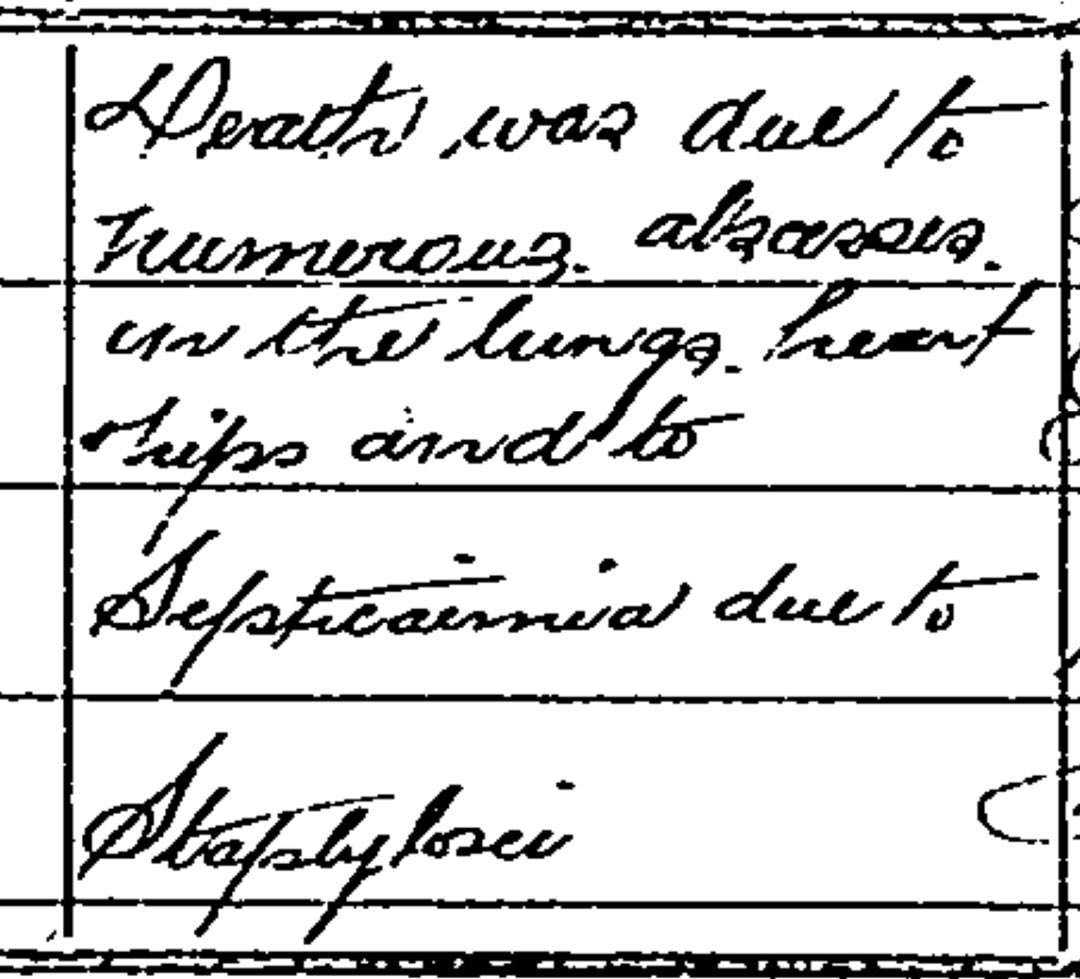 Death was due to
numerous abscesses.
in the lungs. heart
hips and to
Septicaemia due to
Staphylosci